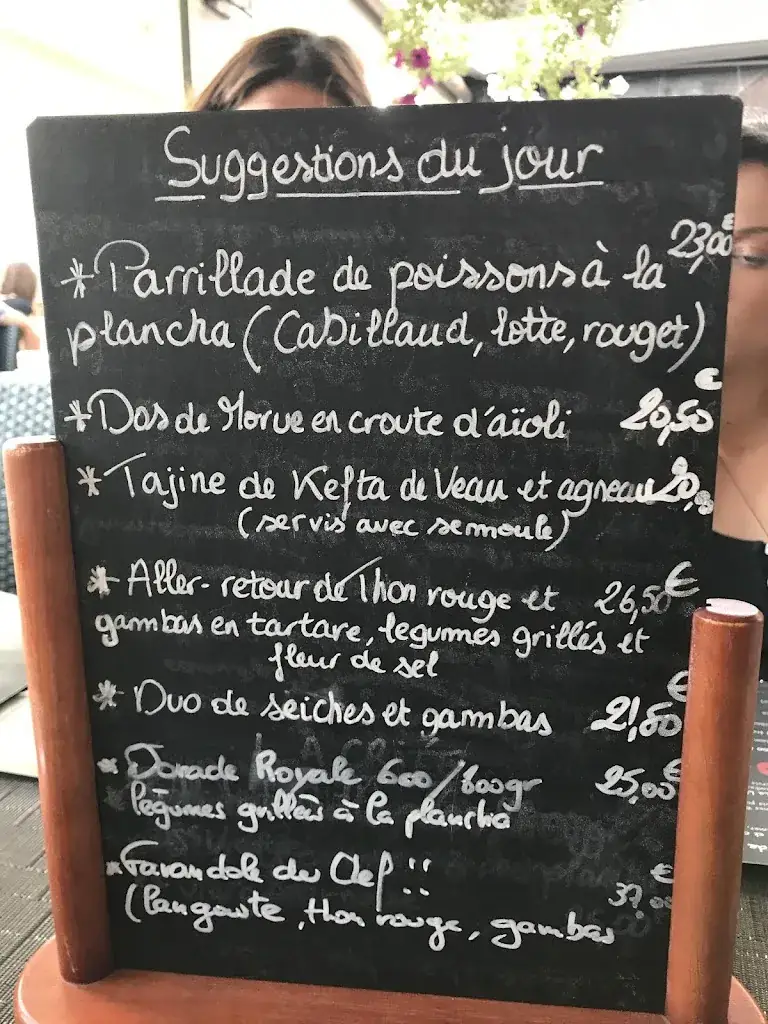 Suggestions du jour
* Parrillade de poissons à la 23,00€
plancha (Cabillaud, lotte, rouget)
* Dos de Morue en croute d'aïoli 20,50€
* Tajine de Kefta de Veau et agneau 20,
(servis avec semoule)
* Aller-retour de Thon rouge et 26,50€
gambas en tartare, legumes grillés et
fleur de sel
* Duo de seiches et gambas 21,50€
* Dorade Royale 600/800gr 25,00€
légumes grillées à la plancha
* Farandole du Chef !! 37,00€
(langouste, thon rouge, gambas